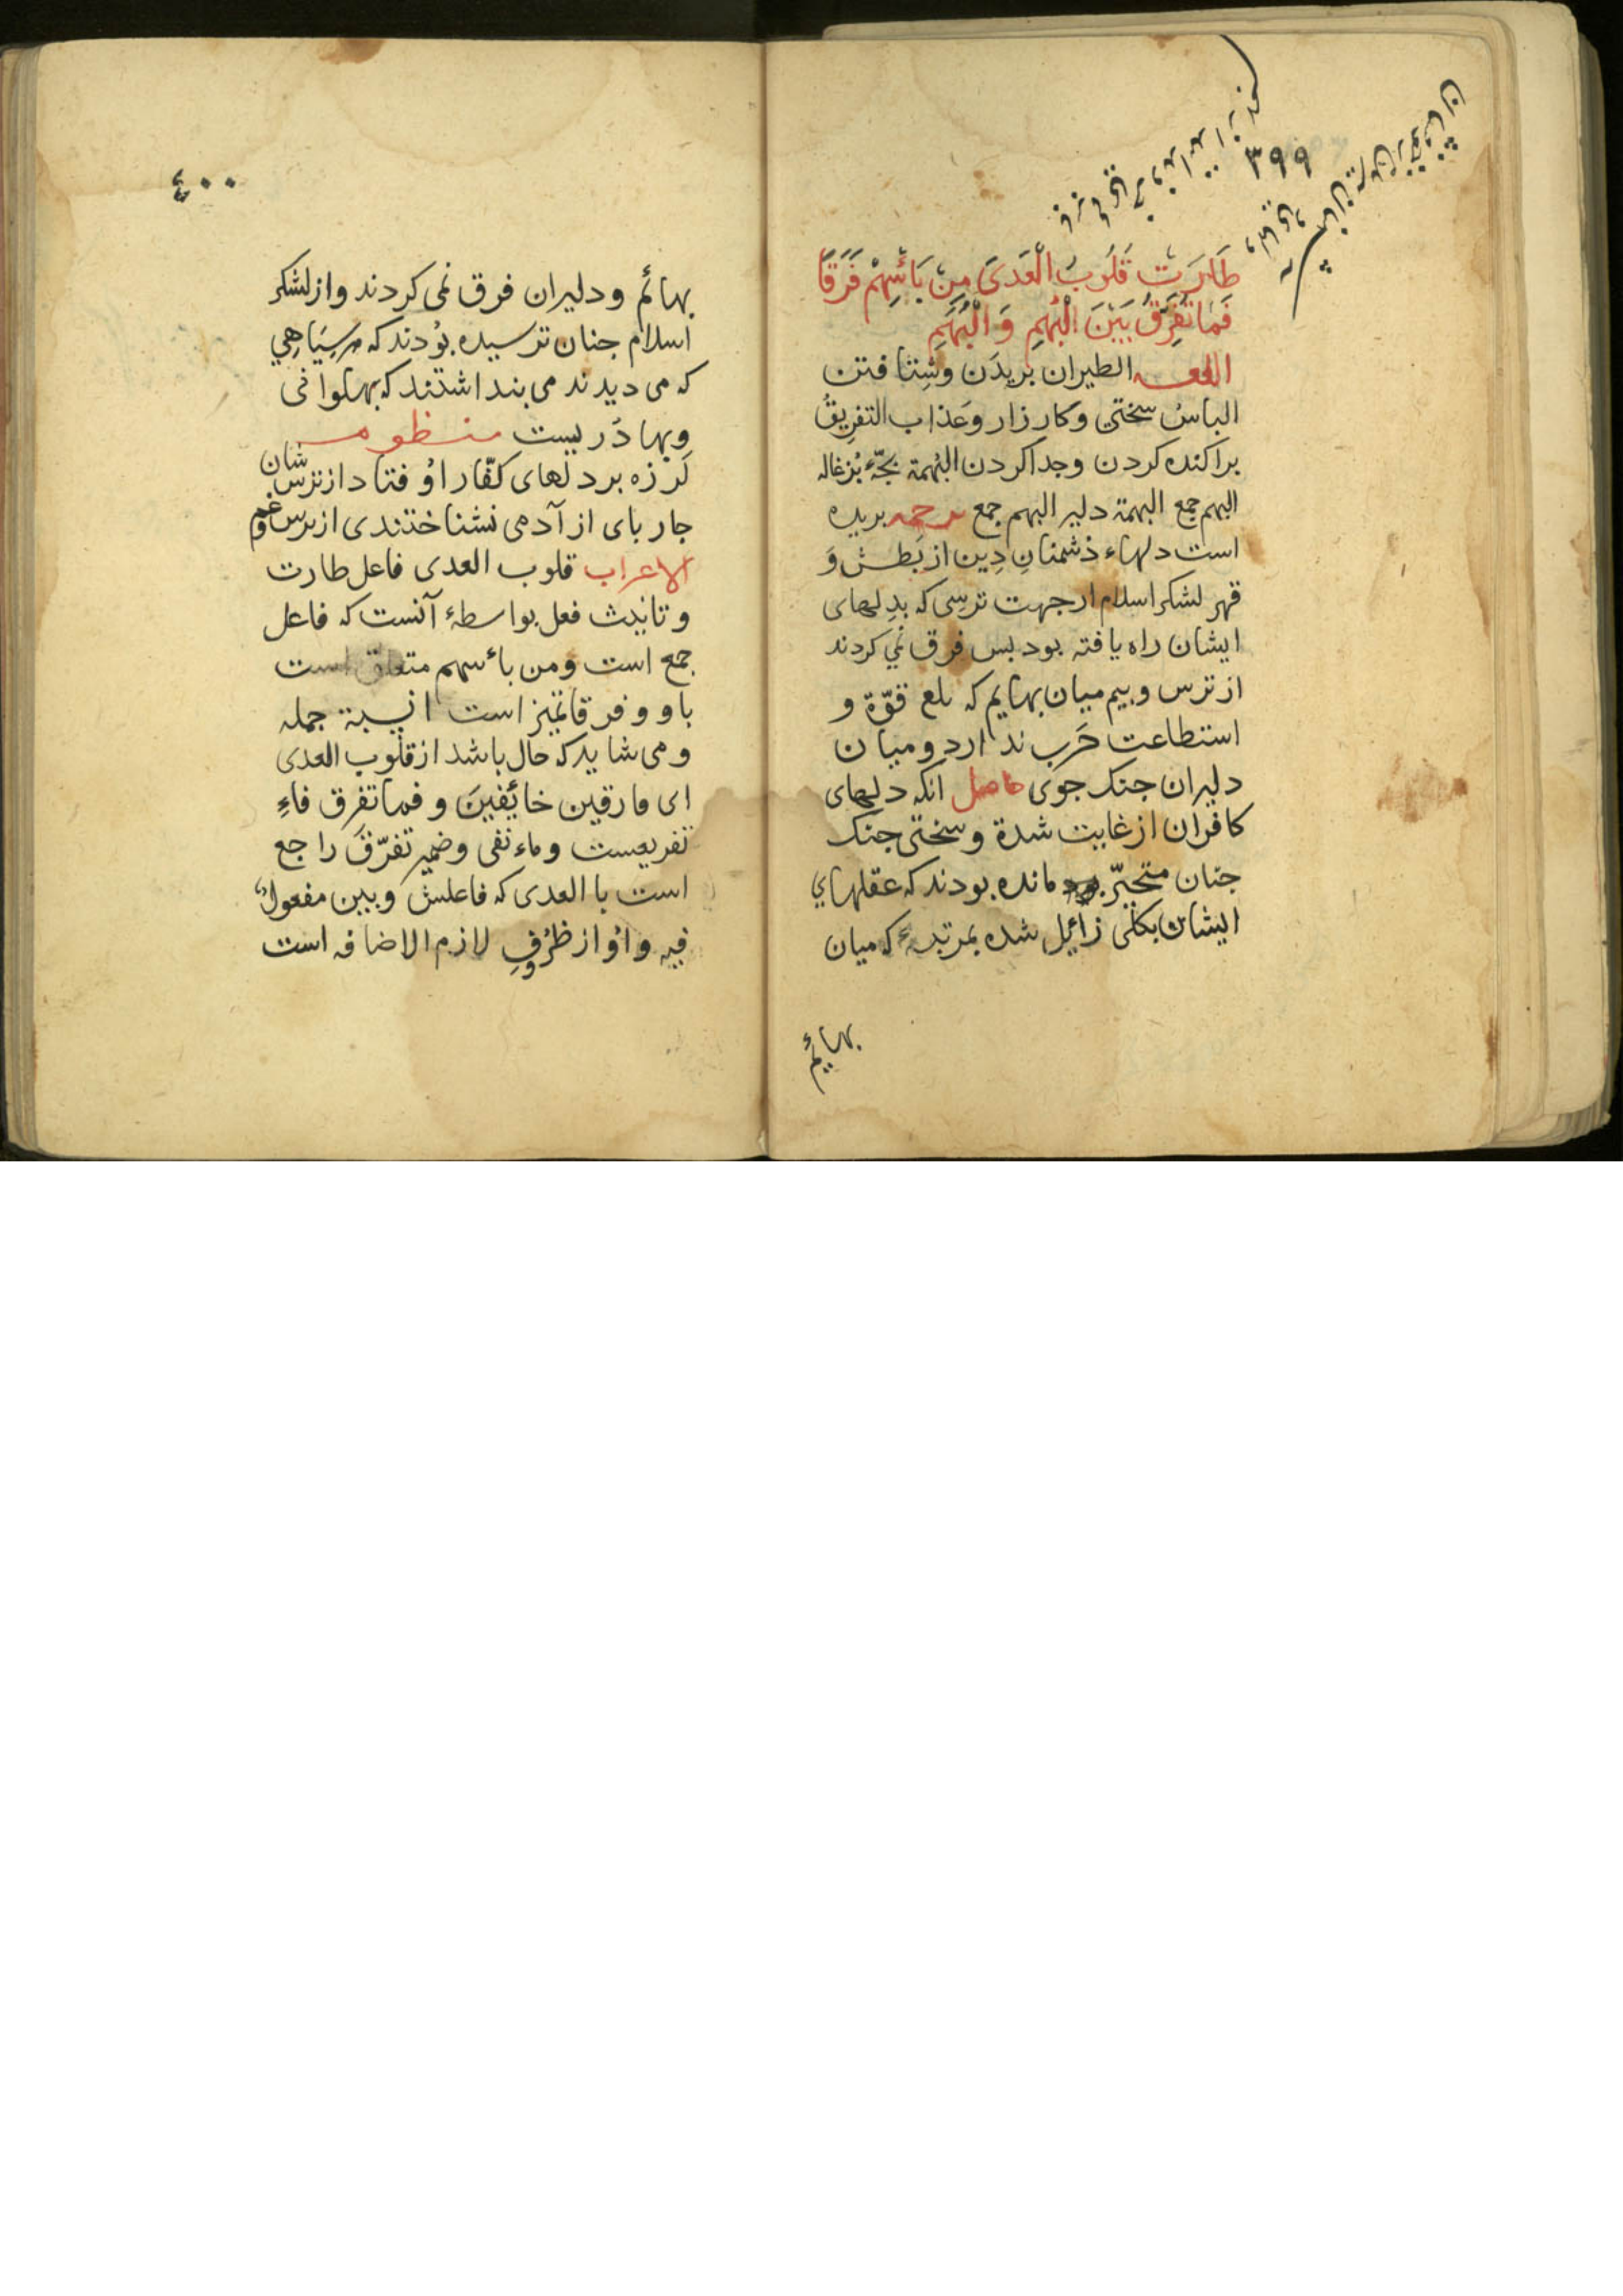 ٣٩٩
طَارَتْ قُلُوبُ الْعَدَى مِنْ بَائْسِهِمْ فَرَقًا
فَمَا تُفَرِّقُ بَيْنَ الْبُهْمِ وَ الْبُهَمِ
اللغه الطیران بریدَن وشِتافتن
الباسُ سختی وکارزار وَعذاب التفرِیقُ
براکنده کردن وجدا کردن البُهمة بچّۀ بُزغاله
البهم جمع البهمة دلیر البهم جمع ترجمه بریده
است دلهاء دشمنانِ دِین از بَطش وَ
قهر لشکر اسلام از جهت ترسی که بدِلهای
ایشان راه یافته بود بس فرق نمی کردند
از ترس و بیم میان بهایم که قوّة و
استطاعت حَرب ندارد و میان
دلیران جنک جوی حاصل انکه دلهای
کافران از غایت شدة و سختی جنک
جنان متحیّر مانده بودند که عقلهاي
ایشان بکلی زائیل شده بمرتبۀ که میان
بهائم
٤٠٠
بهائم و دلیران فرق نمی کردند واز لشکر
اسلام جنان ترسیده بوُدند که هر سِیَاهِي
که می دیدند می بنداشتند که بهلوانی
وبهادَریست منظومه
لَرزه بر دلهای کفّار اوُفتاد از ترس شان
جاربای از آدمی نشناختندی از ترس وغم
الاعراب قلوب العدی فاعل طارت
و تانیث فعل بواسطۀ آنست که فاعل
جمع است و من بائسهم متعلق است
باو و فرقا تمیز است از نسبة جمله
و می شاید که حال باشد از قلوب العدی
ای فارقین خائِفینَ و فما تفرق فاءِ
تفریعست و ماء نفی و ضمیر تفرّقَ راجع
است با العدی که فاعلش و بین مفعولٌ
فیه و اوُ از ظرُوفِ لازم الاضافه است